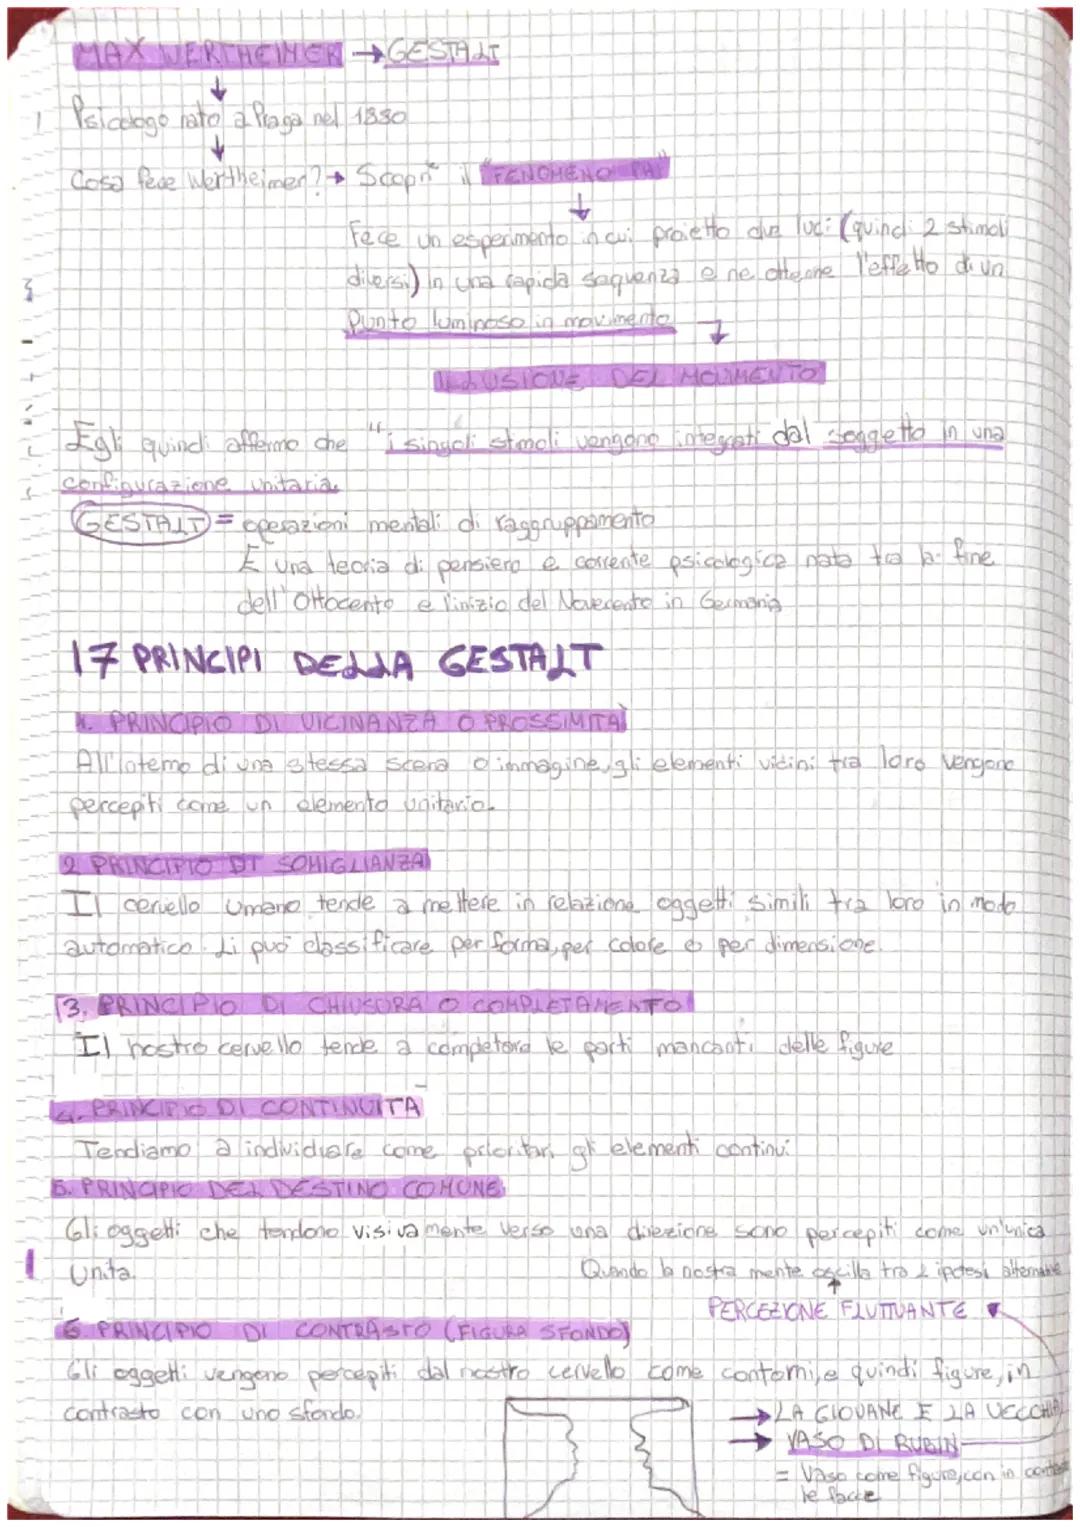 MAX WERTHEIMER → GESTALT
Psicologo nato a Praga nel 1880
Cosa fece Wertheimer? → Scoprì il "FENOMENO PHI"
Fece un esperimento in cui proietto due luci (quindi 2 stimoli
diversi) in una rapida sequenza e ne ottenne l'effetto di un
punto luminoso in movimento
ILLUSIONE DEL MOVIMENTO
Egli quindi affermo che "i singoli stimoli vengono integrati dal soggetto in una
configurazione unitaria.
GESTALT = operazioni mentali di raggruppamento
È una teoria di pensiero e corrente psicologica nata tra la fine
dell'Ottocento e l'inizio del Novecento in Germania
I 7 PRINCIPI DELLA GESTALT
1. PRINCIPIO DI VICINANZA O PROSSIMITA'
All'interno di una stessa scena o immagine, gli elementi vicini tra loro vengono
percepiti come un elemento unitario.
2 PRINCIPIO DI SOMIGLIANZA
Il cervello umano tende a mettere in relazione oggetti simili tra loro in modo
automatico. Li può classificare per forma, per colore o per dimensione.
3. PRINCIPIO DI CHIUSURA O COMPLETAMENTO
Il nostro cervello tende a completare le parti mancanti delle figure
4. PRINCIPIO DI CONTINUITA
Tendiamo a individuare come prioritari gli elementi continui
5. PRINCIPIO DEL DESTINO COMUNE
Gli oggetti che tendono visivamente verso una direzione sono percepiti come un'unica
unita.
Quando la nostra mente oscilla tra 2 ipotesi alternative
PERCEZIONE FLUTTUANTE
6. PRINCIPIO DI CONTRASTO (FIGURA SFONDO)
Gli oggetti vengono percepiti dal nostro cervello come contorni, e quindi figure, in
contrasto con uno sfondo.
→ LA GIOVANE E LA VECCHIA
→ VASO DI RUBIN
= Vaso come figura, con in contrasto
le facce